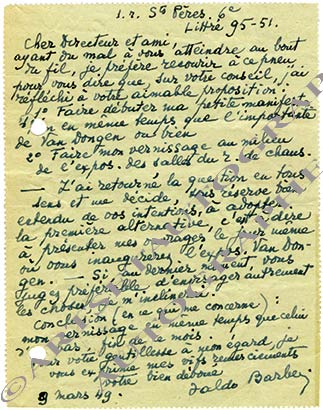 1. r. Sts Pères. 6e
Littré 95-51.
Cher Directeur et ami,
ayant du mal à vous atteindre au bout
du fil, je préfère recourir à ce pneu
pour vous dire que, sur votre conseil, j'ai
réfléchi à votre aimable proposition :
1° Faire débuter ma petite manifest
on en même temps que l'importante
de Van Dongen ou bien
2° Faire mon vernissage au milieu
de l'expos. des salles du r. de chaus.
— J'ai retourné la question en tous
sens et me décide, sous réserve bien
entendu de vos intentions, à adopter
la première alternative, c'est à dire
à présenter mes ouvrages le jour même
où vous inaugurerez l'expos. Van Don-
gen. — Si, au dernier moment, vous
jugez préférable d'envisager autrement
les choses, je m'inclinerai.
Conclusion (en ce qui me concerne) :
mon vernissage en même temps que celui
fin de ce mois
votre gentillesse à mon égard, je
vous exprime mes vifs remerciements
votre bien dévoué
Waldo Barbey
9 mars 49.